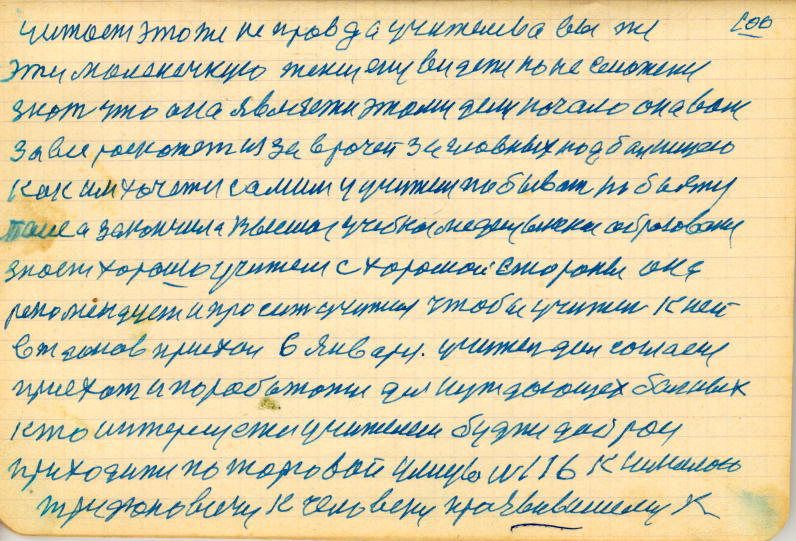 100
читает это же не правда учителева вы же
эту маленечкую женщину видети но не сможете
знат что она является этому делу начало она вам
за все роскажет из за врачей за главных под больницею
как им хочется самим у учителя побыват по быту
закончила высшая учебная медецинская оброзование
знает хорошо учителя с хорошой стороны она
рекомендует и просит учителя чтобы учител к ней
в жданов приехал 6 января. учител дал согласие
приехат и поработати для нуждающех больных
кто интересуети учителем будте добры
приходити по торговой улицы № 16 к николаю
к человеку проявившему к